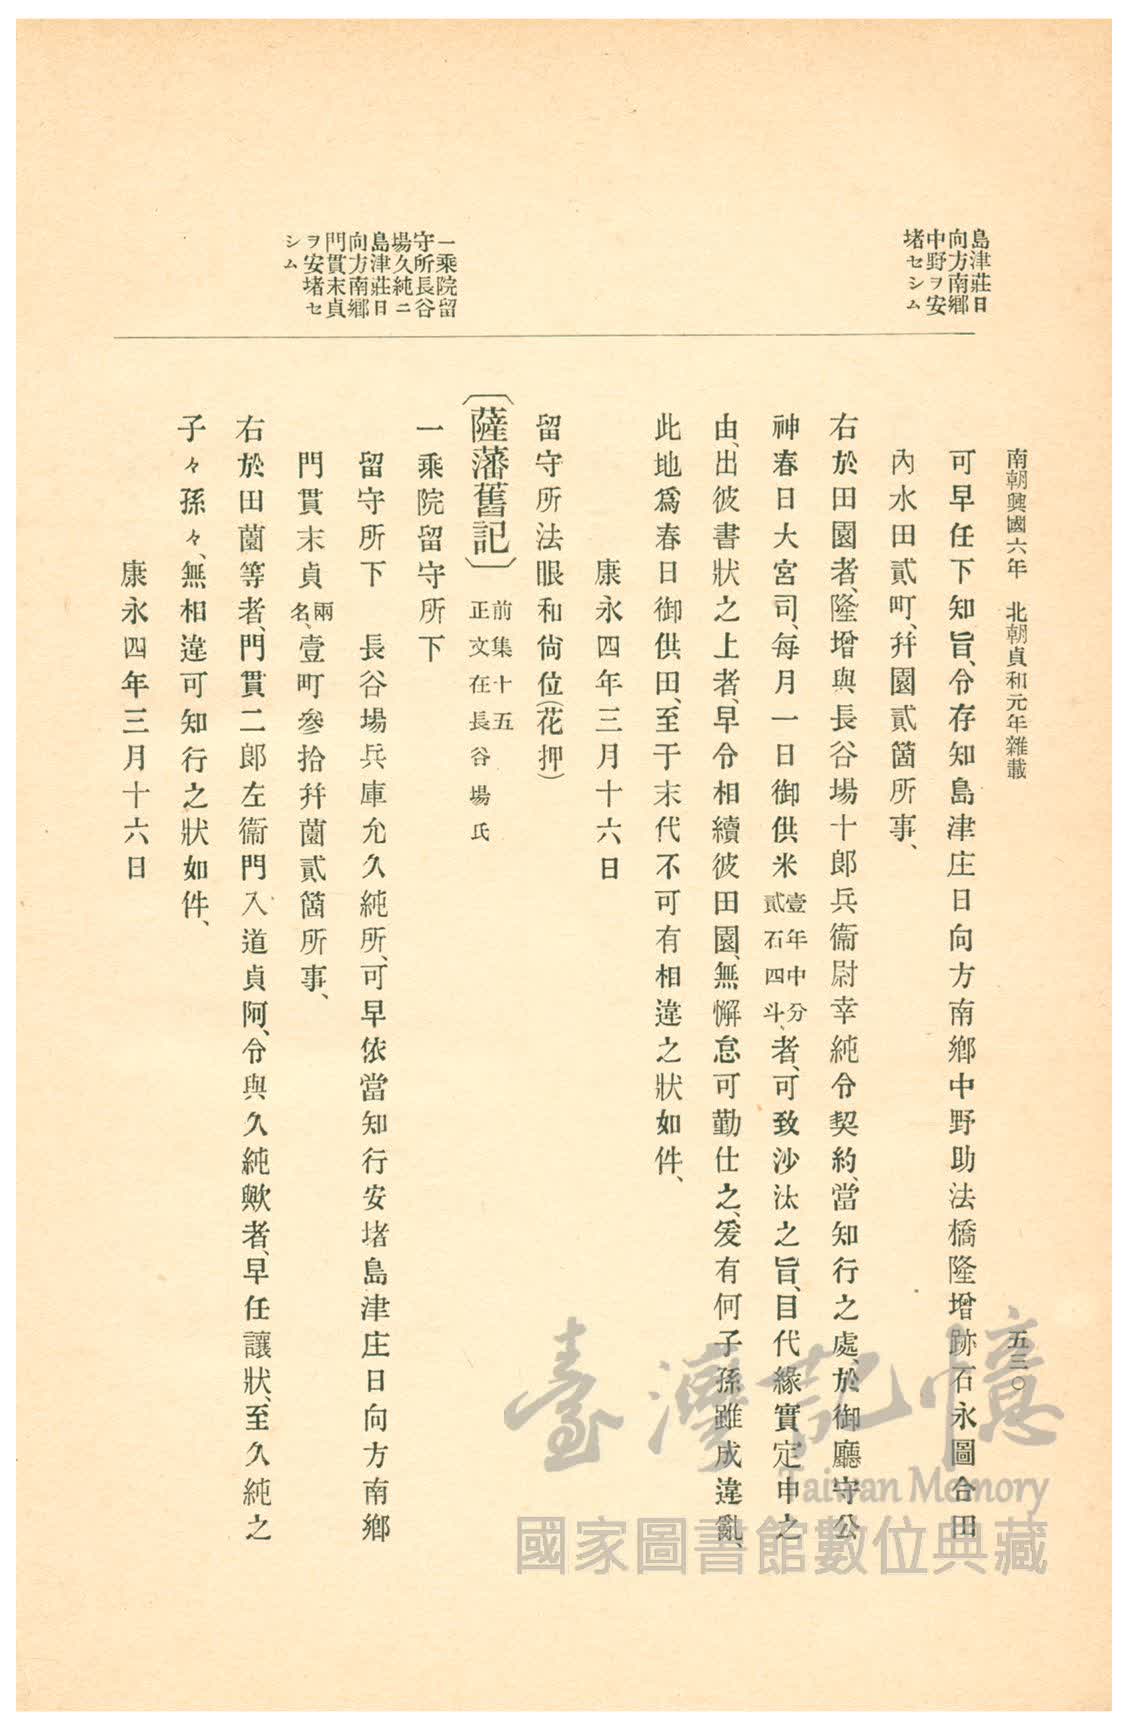 南朝興國六年　北朝貞和元年雜載
五三〇
島津莊日
向方南鄉
中野ヲ安
堵セシム
可早任下知旨、令存知島津庄日向方南鄉中野助法橋隆增跡石永圖合田
內水田貳町、幷園貳箇所事、
右於田園者、隆增與長谷場十郎兵衞尉幸純令契約、當知行之處、於御廳守公
神春日大宮司、每月一日御供米壹年中分貳石四斗、者、可致沙汰之旨、目代緣實定申之
由、出彼書狀之上者、早令相續彼田園、無懈怠可勤仕之、爰有何子孫雖成違亂、
此地爲春日御供田、至于末代不可有相違之狀如件、
康永四年三月十六日
留守所法眼和尙位(花押)
一乘院留
守所長谷
場久純ニ
島津莊日
向方南鄉
門貫末貞
ヲ安堵セ
シム
〔薩藩舊記〕前集十五
正文在長谷場氏
一乘院留守所下
留守所下　長谷場兵庫允久純所、可早依當知行安堵島津庄日向方南鄉
門貫末貞兩名、壹町參拾幷薗貳箇所事、
右於田薗等者、門貫二郎左衞門入道貞阿、令與久純歟者、早任讓狀、至久純之
子々孫々、無相違可知行之狀如件、
康永四年三月十六日
臺灣記憶
Taiwan Memory
國家圖書館數位典藏